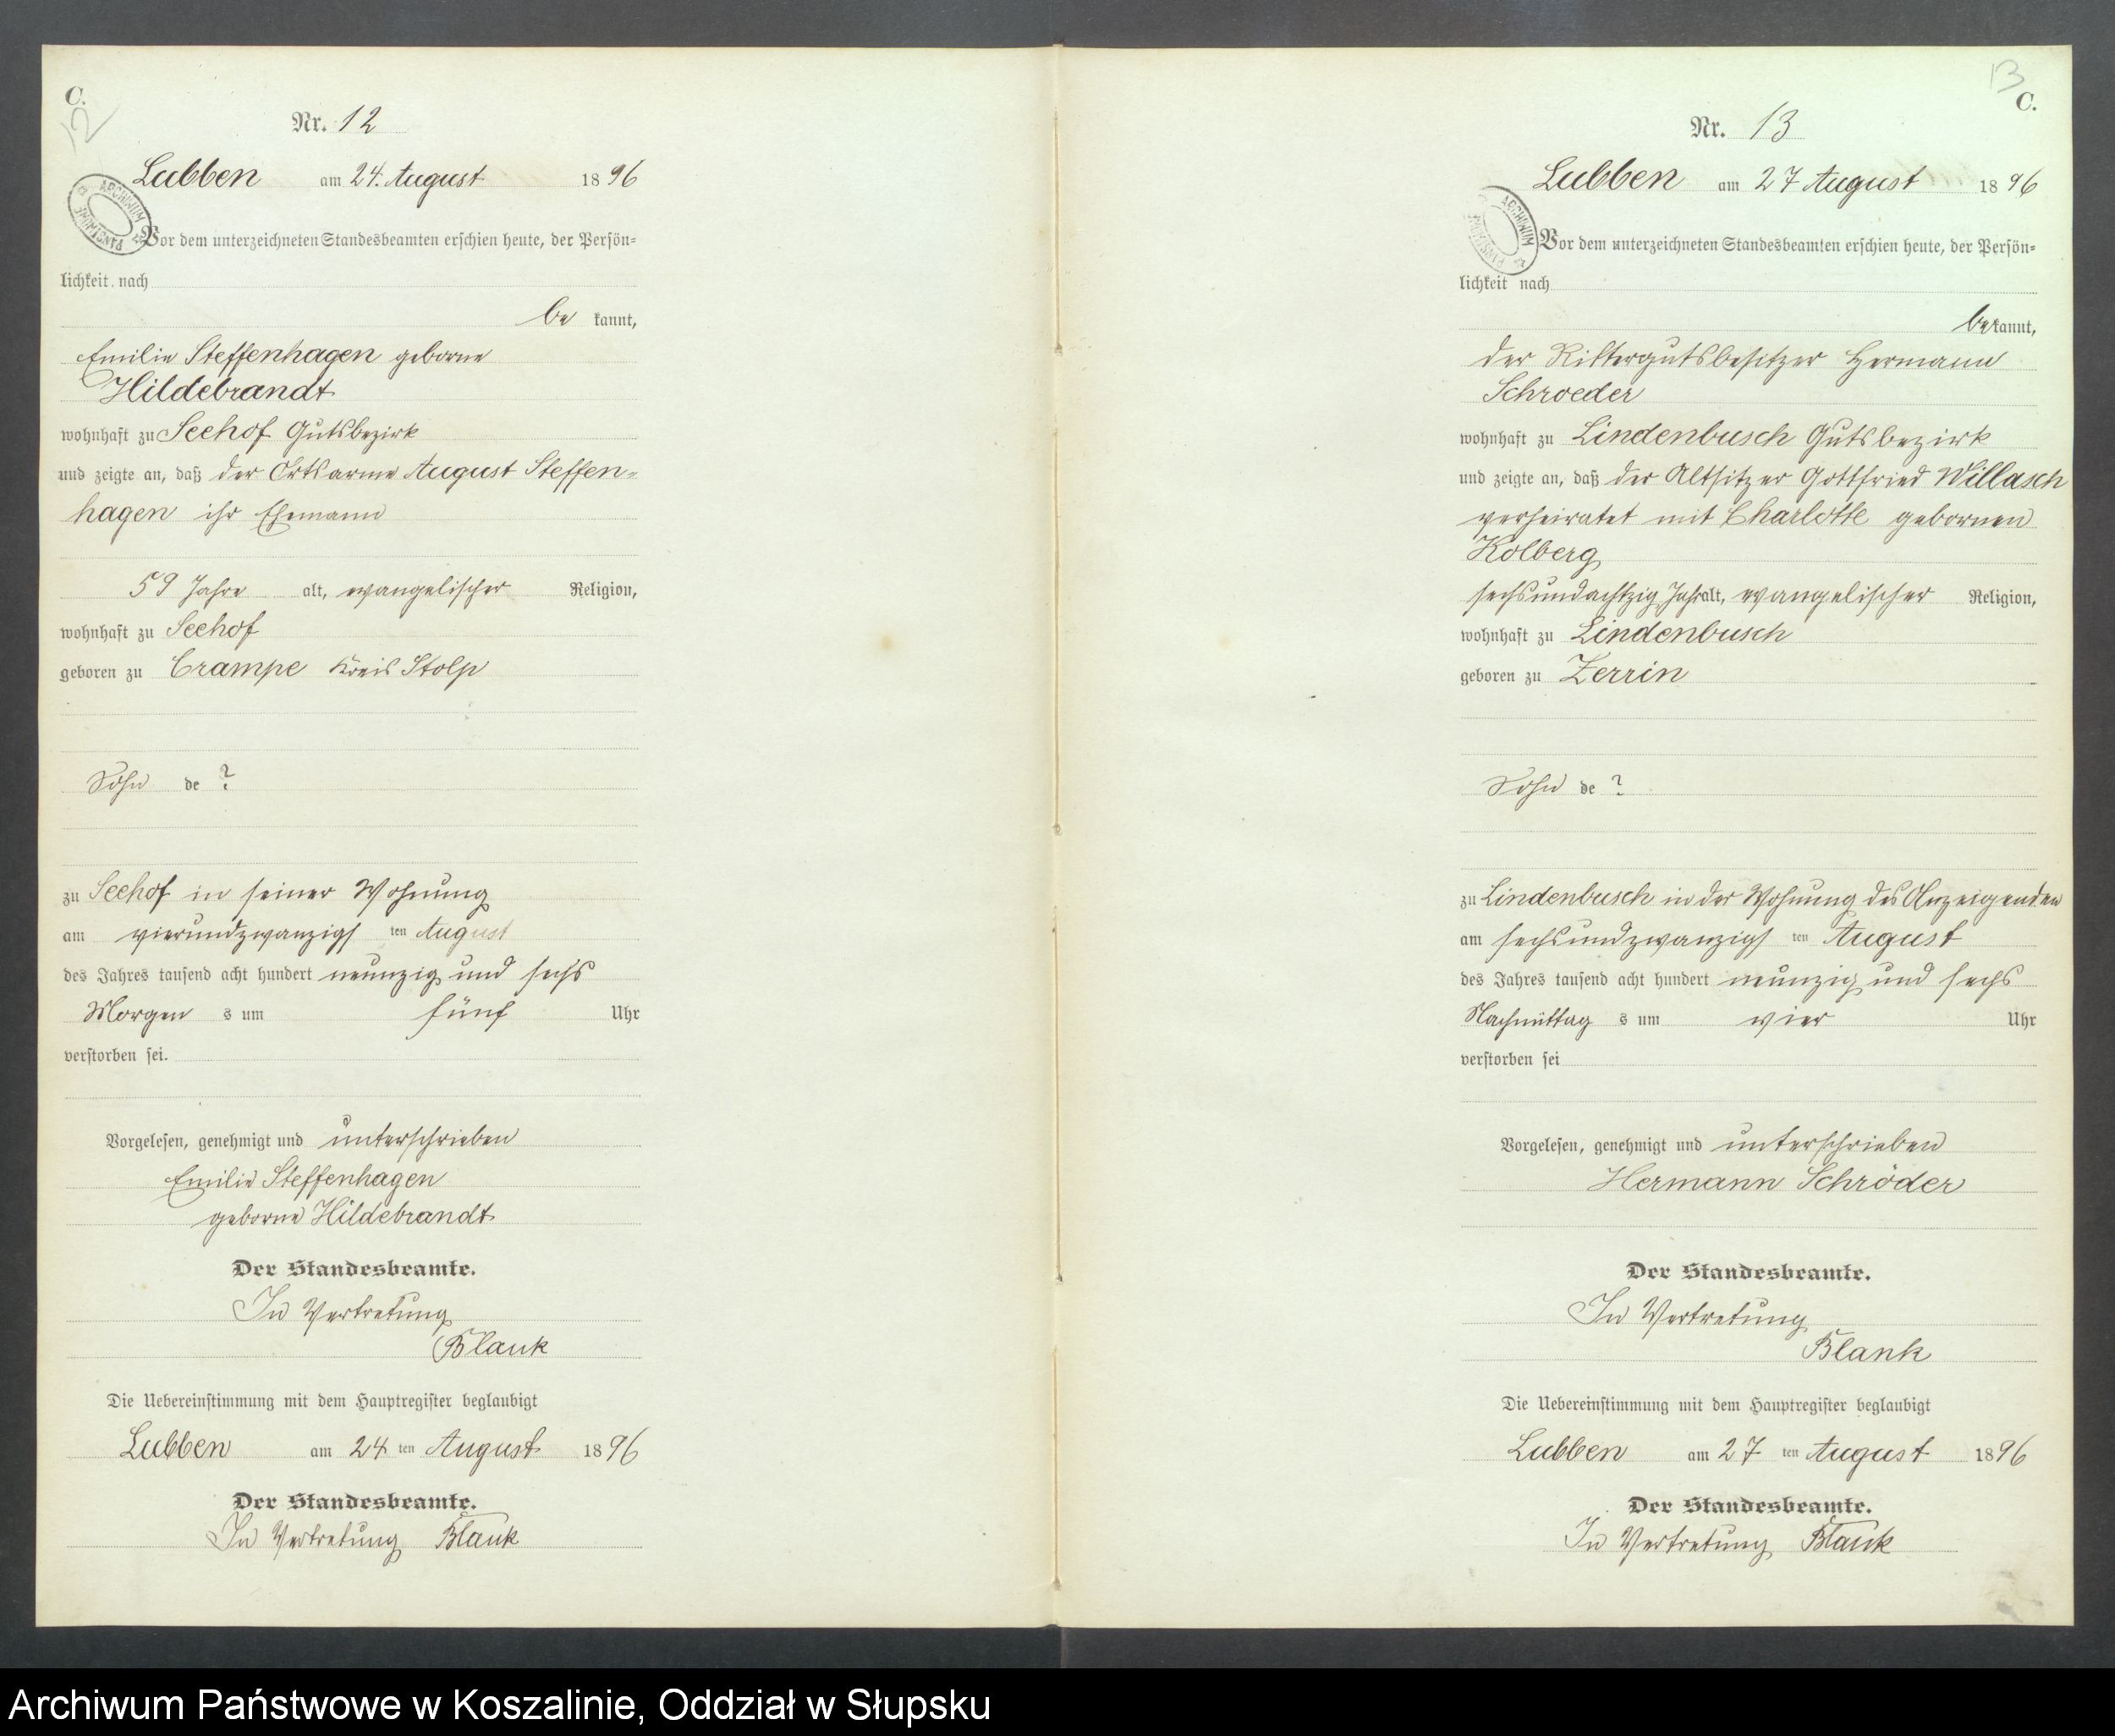 C.
12
Nr. 12
Lubben am 24. August 1896
ARCHIWUM PAŃSTWOWE
Vor dem unterzeichneten Standesbeamten erschien heute, der Persön=
lichkeit nach
be kannt,
Emilie Steffenhagen geborne
Hildebrandt
wohnhaft zu Seehof Gutsbezirk
und zeigte an, daß der Ortsarme August Steffen-
hagen ihr Ehemann
59 Jahre alt, evangelischer Religion,
wohnhaft zu Seehof
geboren zu Crampe Kreis Stolp
Sohn de ?
zu Seehof in seiner Wohnung
am vierundzwanzigs ten August
des Jahres tausend acht hundert neunzig und sechs
Morgen s um fünf Uhr
verstorben sei.
Vorgelesen, genehmigt und unterschrieben
Emilie Steffenhagen
geborne Hildebrandt
Der Standesbeamte.
In Vertretung
Blank
Die Uebereinstimmung mit dem Hauptregister beglaubigt
Lubben am 24 ten August 1896
Der Standesbeamte.
In Vertretung Blank
13
C.
Nr. 13
Lubben am 27 August 1896
ARCHIWUM PAŃSTWOWE
Vor dem unterzeichneten Standesbeamten erschien heute, der Persön=
lichkeit nach
bekannt,
der Rittergutsbesitzer Hermann
Schroeder
wohnhaft zu Lindenbusch Gutsbezirk
und zeigte an, daß der Altsitzer Gottfried Willasch
verheiratet mit Charlotte gebornen
Kolberg
sechsundachtzig Jahr alt, evangelischer Religion,
wohnhaft zu Lindenbusch
geboren zu Zerrin
Sohn de ?
zu Lindenbusch in der Wohnung des Anzeigenden
am sechsundzwanzigs ten August
des Jahres tausend acht hundert neunzig und sechs
Nachmittag s um vier Uhr
verstorben sei
Vorgelesen, genehmigt und unterschrieben
Hermann Schröder
Der Standesbeamte.
In Vertretung
Blank
Die Uebereinstimmung mit dem Hauptregister beglaubigt
Lubben am 27 ten August 1896
Der Standesbeamte.
In Vertretung Blank
Archiwum Państwowe w Koszalinie, Oddział w Słupsku